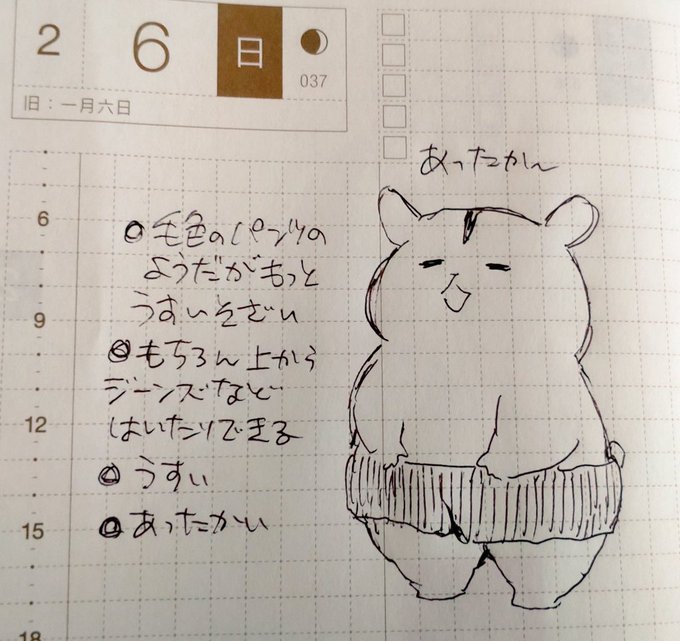 2
6
日
037
旧：一月六日
あったかん〜
6
9
12
15
18
毛色のパンツの
ようだがもっと
うすいそざい
もちろん上から
ジーンズなど
はいたりできる
うすい
あったかい